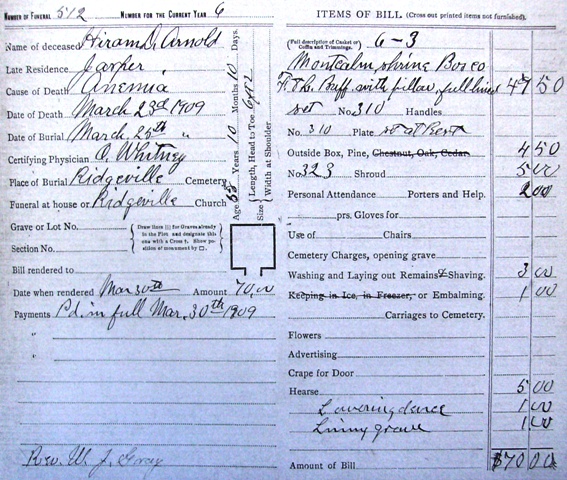 NUMBER OF FUNERAL 512 NUMBER FOR THE CURRENT YEAR 6
Name of deceased Hiram D. Arnold
Late Residence Jasper
Cause of Death Anemia
Date of Death March 23rd 1909
Date of Burial March 25th "
Certifying Physician O. Whitney
Place of Burial Ridgeville Cemetery
Funeral at house or Ridgeville Church
Age 55 Years 10 Months 10 Days.
Size { Length, Head to Toe 6ft 2
Width at Shoulder
Grave or Lot No.
Section No.
{ Draw lines ||| for Graves already in the Plot and designate this one with a Cross †. Show position of monument by □. }
Bill rendered to
Date when rendered Mar 30th Amount 70,00
Payments Pd. in full Mar. 30th 1909
"
"
Rev. W. J. Gray
ITEMS OF BILL. (Cross out printed items not furnished).
(Full description of Casket or Coffin and Trimmings. 6-3
Montcalm shrine Box co
Buff with pillar, full lined 49 50
set No. 310 Handles
No. 310 Plate at Rest
Outside Box, Pine, Chestnut, Oak, Cedar 4 50
No. 323 Shroud 5 00
Personal Attendance Porters and Help. 2 00
prs. Gloves for
Use of Chairs
Cemetery Charges, opening grave
Washing and Laying out Remains & Shaving. 3 00
Keeping in Ice, in Freezer, or Embalming. 1 00
Carriages to Cemetery.
Flowers
Advertising
Crape for Door
Hearse 5 00
Lowering device 1 00
Lining grave 1 00
Amount of Bill $70 00